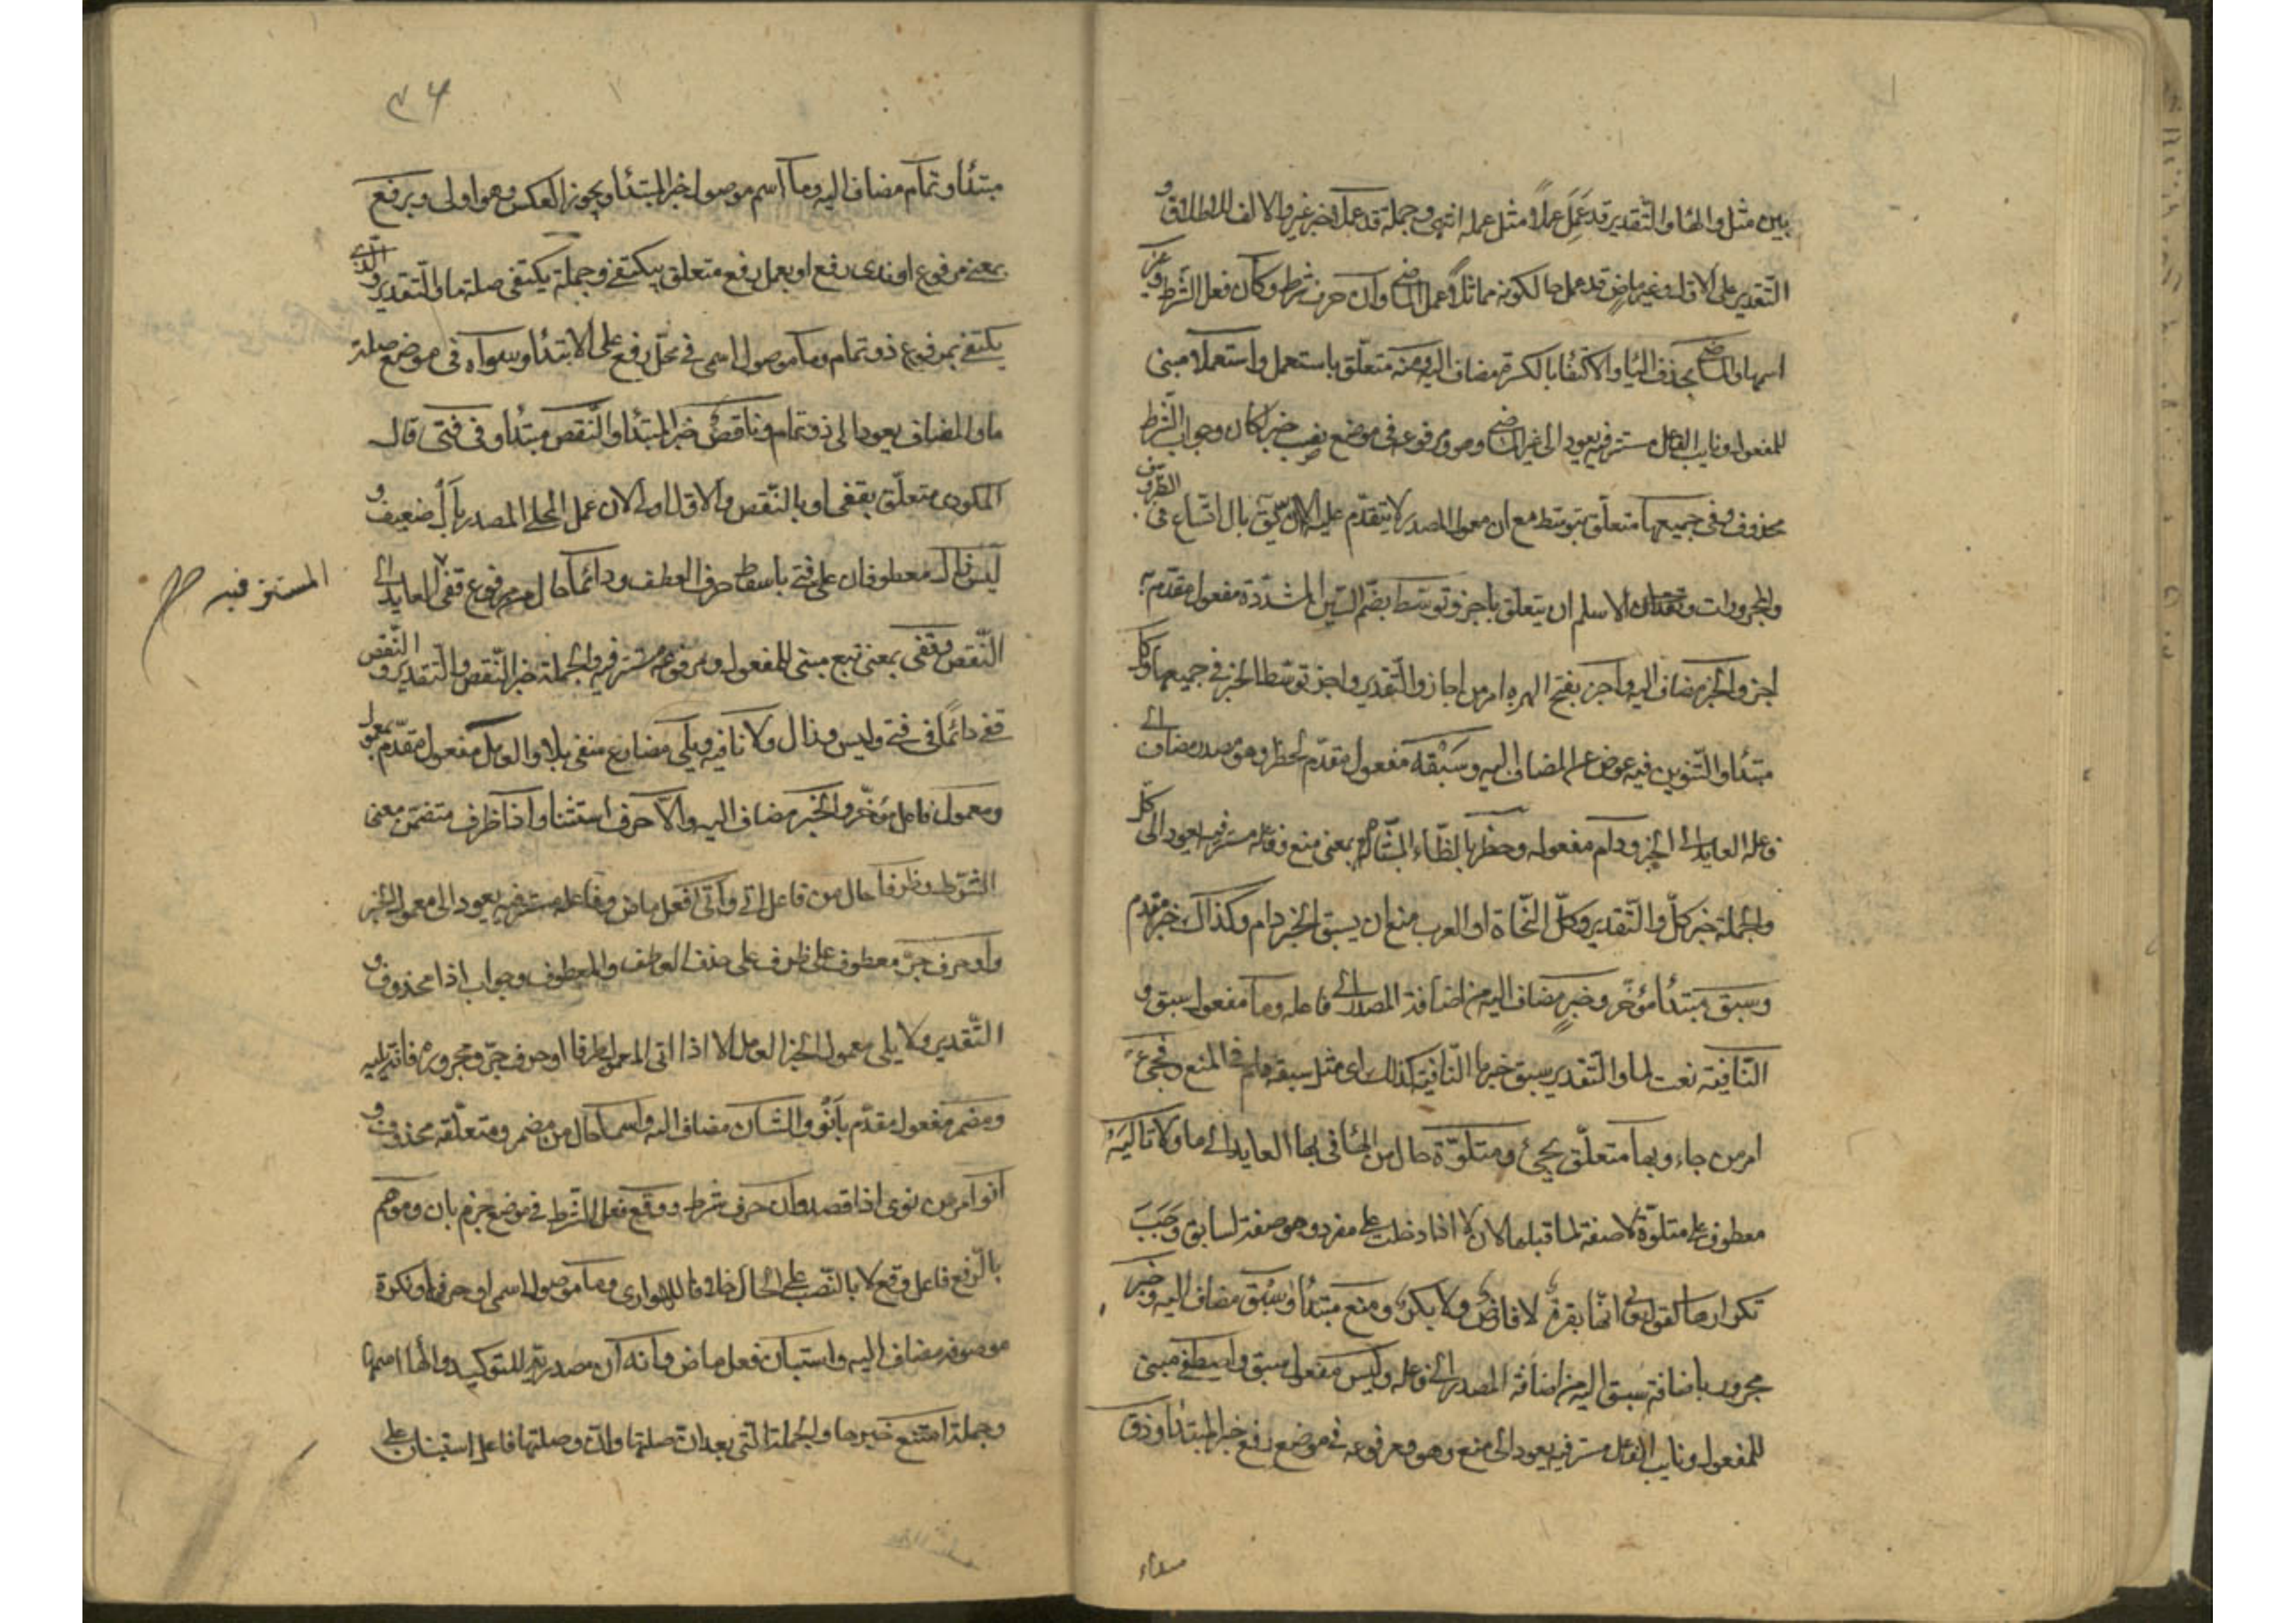 بين مثل والهاء والتقدير قد عمل عملا مثل عمله انتهى وجملة قد عمل خبر غير والالف للاطلاق و
التقدير على الاول وغير ماض قد عمل حالكونه مماثلا عمل الماضي وان حرف شرط وكان فعل الشرط وغير
اسمها والماضي بحذف الياء والاكتفاء بالكسرة مضاف اليه ومنه متعلق باستعمل واستعملا مبني
للمفعول ونايب الفاعل مستتر فيه يعود الى غير الماضي وهو ومرفوعه في موضع نصب خبر كان وجواب الشرط
محذوف وفي جميعها متعلق بتوسط مع ان معمول المصدر لا يتقدم عليه الاتساع في الظروف
والمجرورات الاسلم ان يتعلق باجز وتوسط بضم السين المشددة مفعول مقدم
اجز والخبر مضاف اليه واجز بفتح الهمزة امر من اجاز والتقدير واجز توسط الخبر في جميعها وكل
مبتدأ والتنوين فيه عوض عن المضاف اليه وسبقه مفعول مقدم لحظر وهو مصدر مضاف الى
فاعله العايد الى الخبر ودام مفعوله وحظر بالظاء المشالة بمعنى منع وفاعله مستتر فيه يعود الى كل
والجملة خبر كل والتقدير وكل النحاة او العرب منع ان يسبق الخبر دام وكذاك خبر مقدم
وسبق مبتدأ مؤخر وخبر مضاف اليه من اضافة المصدر الى فاعله وما مفعول سبق و
النافية نعت لما والتقدير سبق خبر ما النافية كذلك اى مثل سبقه دام في المنع وفجئ
امر من جاء وبها متعلق بجئ ومتلوة حال من الهاء في بها العايد الى ما ولا تاليه
معطوف على متلوة لا صفة لما قبلها لان لا اذا دخلت على مفرد وهو صفة لسابق وجب
تكرارها كقوله تعالى انها بقرة لا فارض ولا بكر ومنع مبتدأ وسبق مضاف اليه وخبر
مجرور باضافة سبق اليه من اضافة المصدر الى فاعله وليس مفعول سبق واصطفي مبني
للمفعول ونايب الفاعل مستتر فيه يعود الى منع وهو ومرفوعه في موضع رفع خبر المبتدأ وذو
مبتدأ
٣٦
مبتدأ وتمام مضاف اليه وما اسم موصول خبر المبتدأ ويجوز العكس وهو اولى وبرفع
بمعنى مرفوع او بذي رفع او بعمل رفع متعلق بيكتفي وجملة يكتفى صلة ما والتقدير والذي
يكتفي بمرفوع ذو تمام وما موصول اسمى في محل رفع على الابتداء وسواه في موضع صلة
ما والمضاف يعودا الى ذو تمام وناقص خبر المبتدأ والنقص مبتدأ وفي فتى قال
المكودى متعلق بقفى او بالنقص والاول اولى لان عمل المحلى المصدر بال ضعيف و
ليس زال معطوفان على فتى باسقاط حرف العطف ودائما حال من مرفوع قفى العايد الى
المستتر فيه صح
النقص وقفى بمعنى تبع مبنى للمفعول ومرفوعه مستتر فيه والجملة خبر النقص والتقدير والنقص
قفى دائما في فتى وليس وزال ولا نافية ويلى مضارع منفى بلا والعامل مفعول مقدم بمعمول
ومعمول فاعل مؤخر والخبر مضاف اليه والا حرف استثناء واذا ظرف متضمن معنى
الشرط وظرفا حال من فاعل اتى واتى فعل ماض وفاعله مستتر فيه يعود الى معمول الخبر
واو حرف جر معطوف على ظرف على حذف العاطف والمعطوف وجواب اذا محذوف و
التقدير ولا يلى معمول الخبر العامل الا اذا اتى المعمول ظرفا او حرف جر ومجروره فانه يليه
ومضمر مفعول مقدم بانو والشان مضاف اليه واسما حال من مضمر ومتعلقه محذوف و
انو امر من نوى اذا قصد وان حرف شرط ووقع فعل الشرط في موضع جزم بان وموهم
بالرفع فاعل وقع لا بالنصب على الحال خلافا للهوارى وما موصول اسمى او حرفى او نكرة
موصوفة مضاف اليه واستبان فعل ماض وانه ان مصدرية للتوكيد والهاء اسمها
وجملة امتنع خبرها والجملة التى بعد ان صلتها وان وصلتها فاعل استبان على